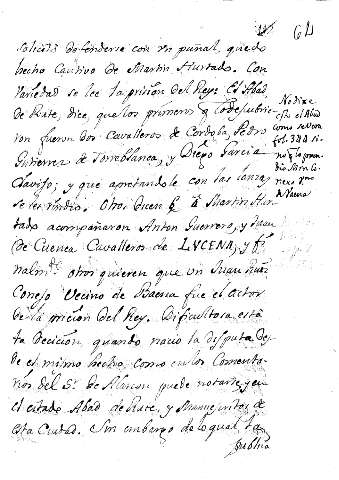 64
solicitó defenderse con un puñal, quedo
hecho Cautivo de Martin Hurtado. Con
variedad se lee la prision del Rey: El Abad
de Rute, dice, que los primeros q lo descubrie-
ron fueron dos Cavalleros de Cordoba, Pedro
Gutierrez de Torreblanca, y Diego Garcia
Clavijo; y que apretandole con las lanzas
se les rindio. Otros Quen q á Martin Hur-
tado acompañaron Anton Guerrero, y Juan
de Cuenca Cavalleros de LUCENA; y fi-
nalmte otros quieren que un Juan Ruiz
Conejo Vecino de Baena fue el Actor
de la prision del Rey. Dificultosa está
ta decicion, quando nacio la disputa des-
de el mismo hecho, como en los Comenta-
rios del Sr. de Alarcon puede notarse, y en
el citado Abad de Rute, y Manuscritos de
esta Ciudad. Sin embargo de lo qual, la
publica
No dize
esto el Abad
como se ve en
fol. 344 si-
no q lo pren-
dio Martin
vº de
Lucena